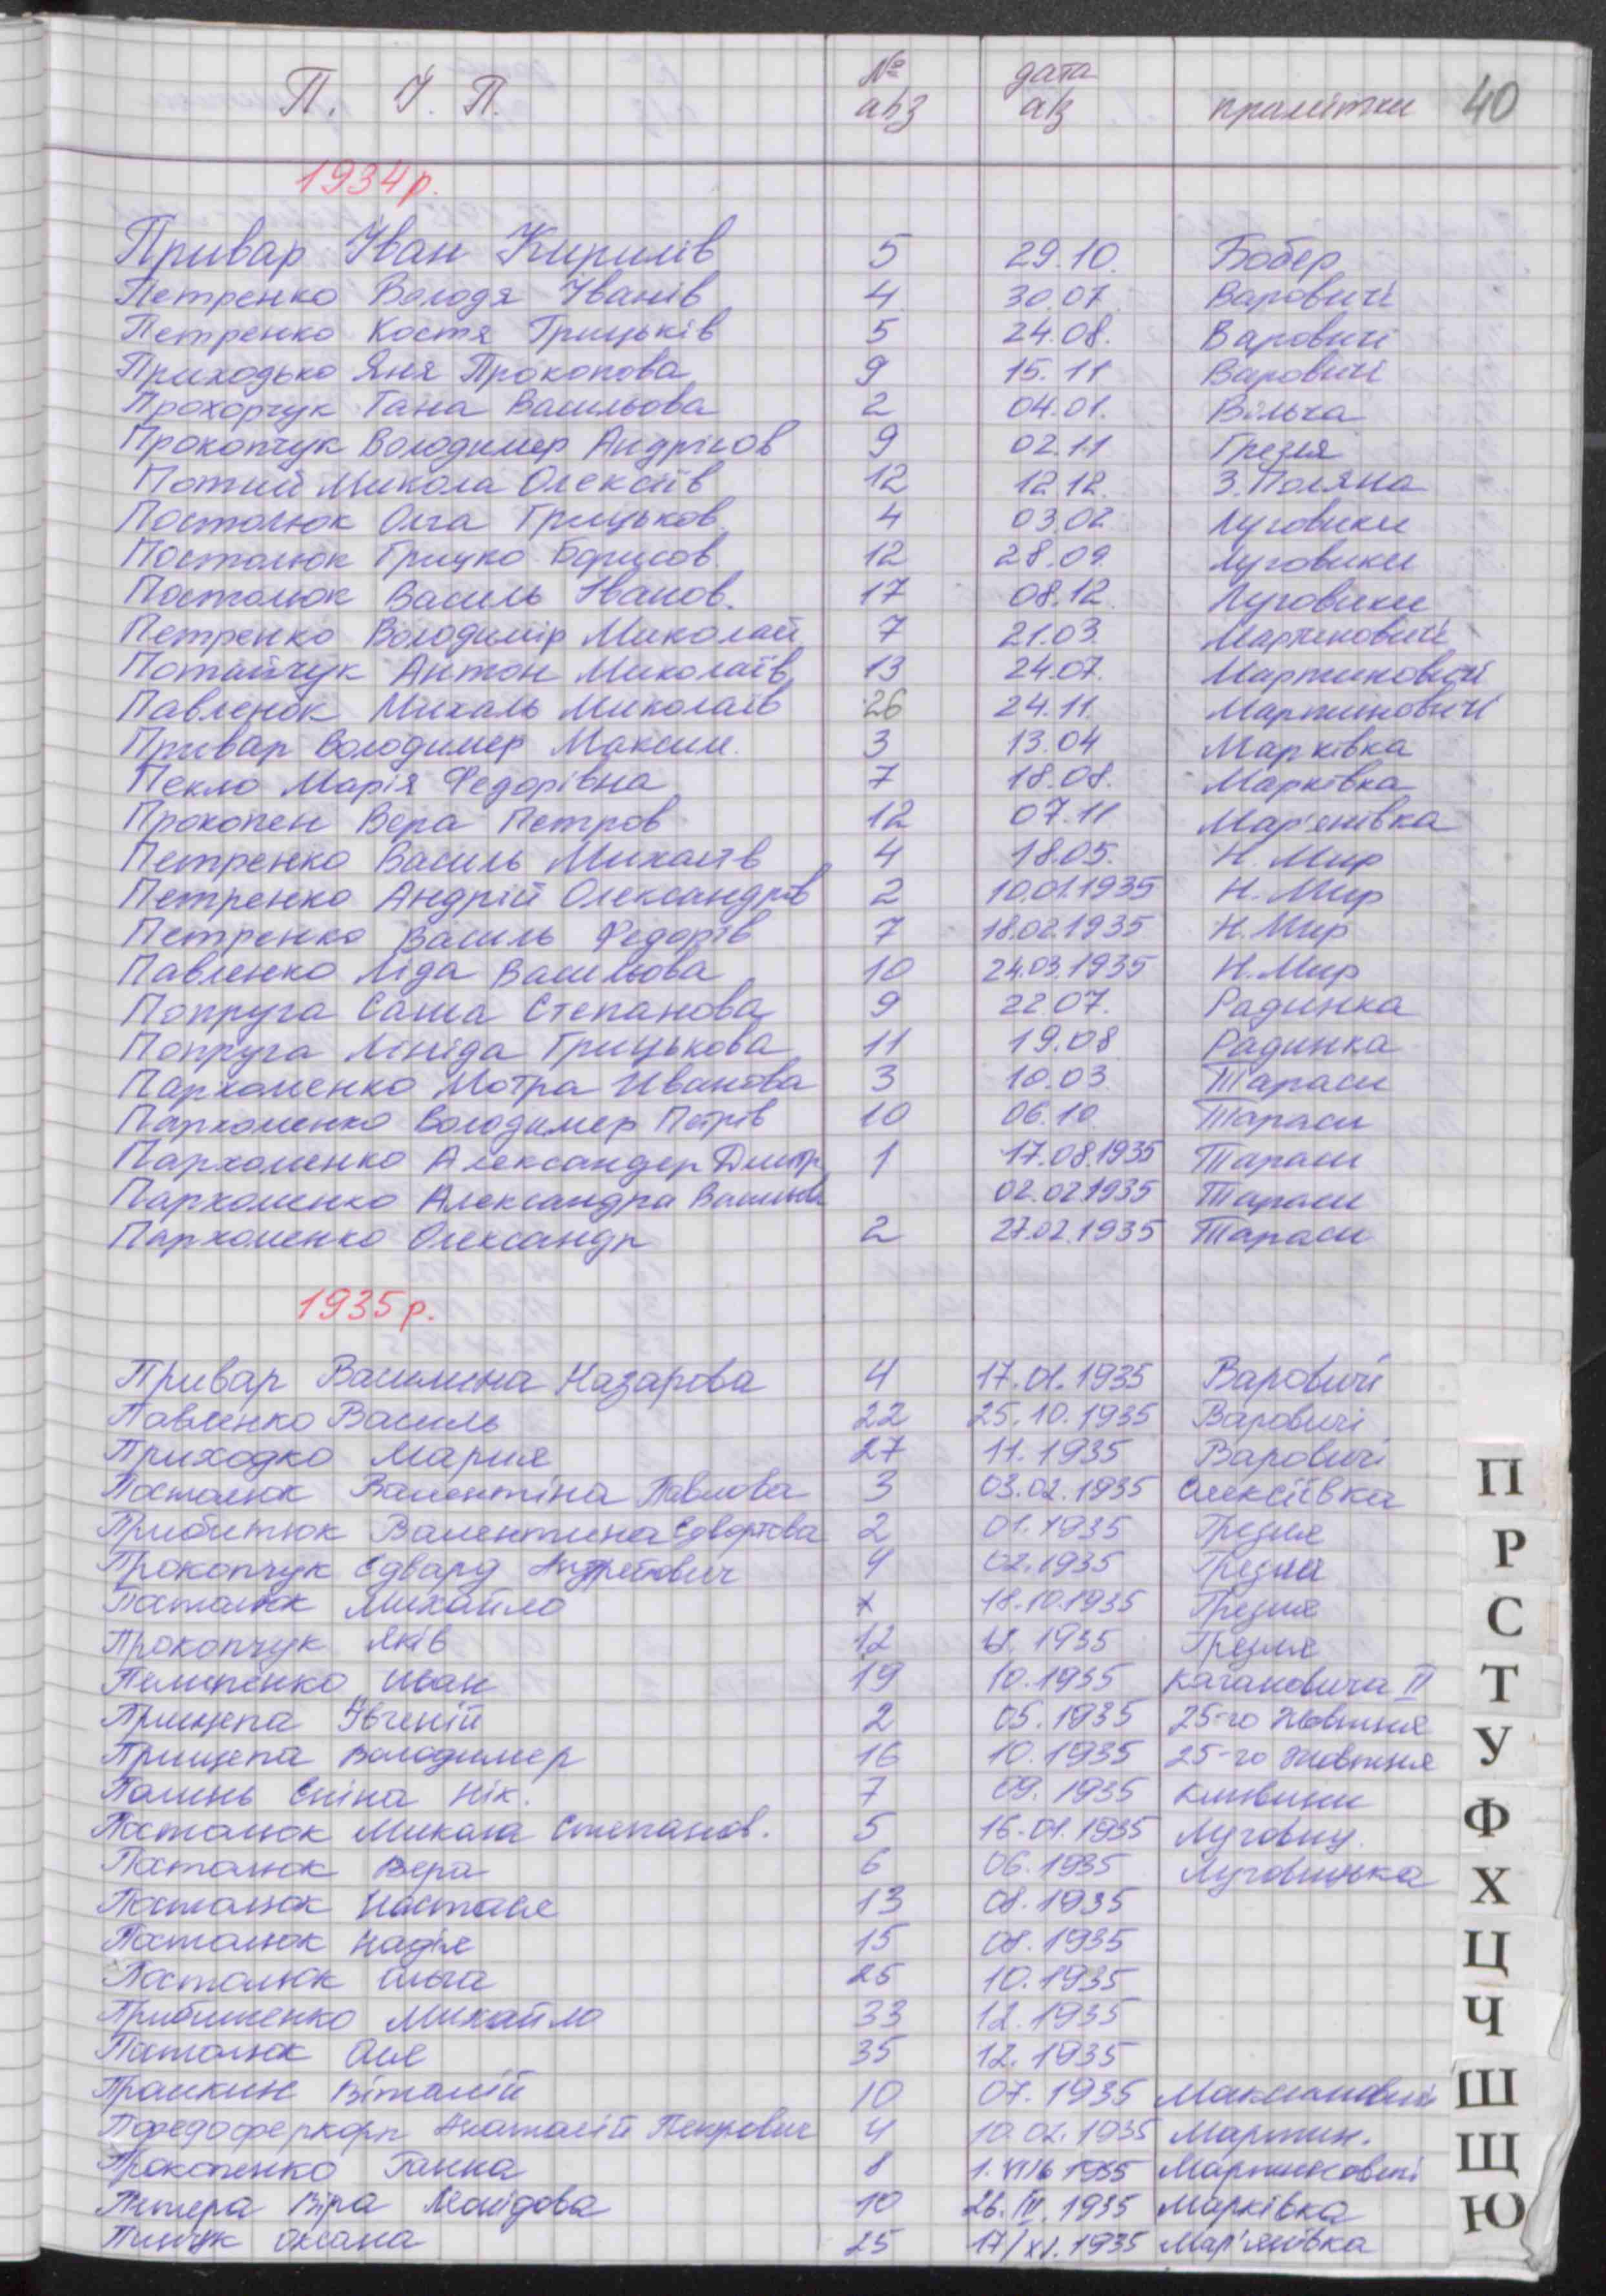 П. І. П. № а/з дата а/з примітки 40
1934р.
Привар Іван Кирилів 5 29.10. Бобер
Петренко Володя Іванів 4 30.07. Варовичі
Петренко Костя Грицьків 5 24.08. Варовичі
Приходько Яня Прокопова 9 15.11 Варовичі
Прохорчук Гана Васильова 2 04.01. Вільча
Прокопчук Володимер Андріїов 9 02.11 Грезля
Потий Микола Олексіїв 12 12.12. З.Поляна
Постолюк Ольга Грицьков. 4 03.02 Луговики
Постолюк Грицко Борисов. 12 28.09. Луговики
Постолюк Василь Іванов. 17 08.12. Луговики
Петренко Володимір Миколай 7 21.03. Мартиновичі
Потайчук Антон Миколаїв 13 24.07. Мартиновичі
Павленок Михаль Миколаїв 26 24.11. Мартиновичі
Привар Володимер Максим. 3 13.04 Марківка
Пекло Марія Федорівна 7 18.08. Марківка
Прокопен Вера Петров 12 07.11 Мар'янівка
Петренко Василь Михалів 4 18.05. Н. Мир
Петренко Андрій Олександрів 2 10.01.1935 Н. Мир
Петренко Василь Федорів 7 18.02.1935 Н.Мир
Павленко Ліда Васильова 10 24.03.1935 Н.Мир
Попруга Саша Степанова 9 22.07. Радинка
Попруга Лініда Грицькова 11 19.08 Радинка
Пархоменко Мотра Иванова 3 10.03. Тараси
Пархоменко Володимер Петрів 10 06.10. Тараси
Пархоменко Александер Дмитр. 1 17.08.1935 Тараси
Пархоменко Александра Васильв 02.02.1935 Тараси
Пархоменко Олександр 2 27.02.1935 Тараси
1935р.
Привар Василина Назарова 4 17.01.1935 Варовичі
Павленко Василь 22 25.10.1935 Варовичі
Приходко Мария 27 11.1935 Варовичі
Постолюк Валентіна Павлова 3 03.02.1935 Олексіївка
Прибитюк Валентина Едвартова 2 01.1935 Грезля
Прокопчук Едвард Андрейович 4 02.1935 Грезля
Постолюк Михайло 18.10.1935 Грезля
Прокопчук Яків 12 1935 Грезля
Пилипенко Иван 19 10.1935 Кагановича II
Прищепа Івгеній 2 05.1935 25-го Жовтня
Прищепа Володимер 16 10.1935 25-го Жовтня
Полинь Нік. 7 09.1935 Кливини
Постолюк Микола Степанов. 5 16.01.1935 Луговиц.
Постолюк Вера 6 06.1935 Луговицька
Постолюк Настася 13 08.1935
Постолюк Надія 15 08.1935
Постолюк Ольга 25 10.1935
Михайло 33 12.1935
Постолюк Оля 35 12.1935
Віталій 10 07.1935 Максимовичі
Анатолій Петрович 4 10.02.1935 Мартин.
Прокопенко Ганна 8 1935 Мартиновичі
Віра Леонідова 10 26.IV.1935 Марківка
Пінчук Оксана 25 17/XI.1935 Мар'янівка
П
Р
С
Т
У
Ф
Х
Ц
Ч
Ш
Щ
Ю